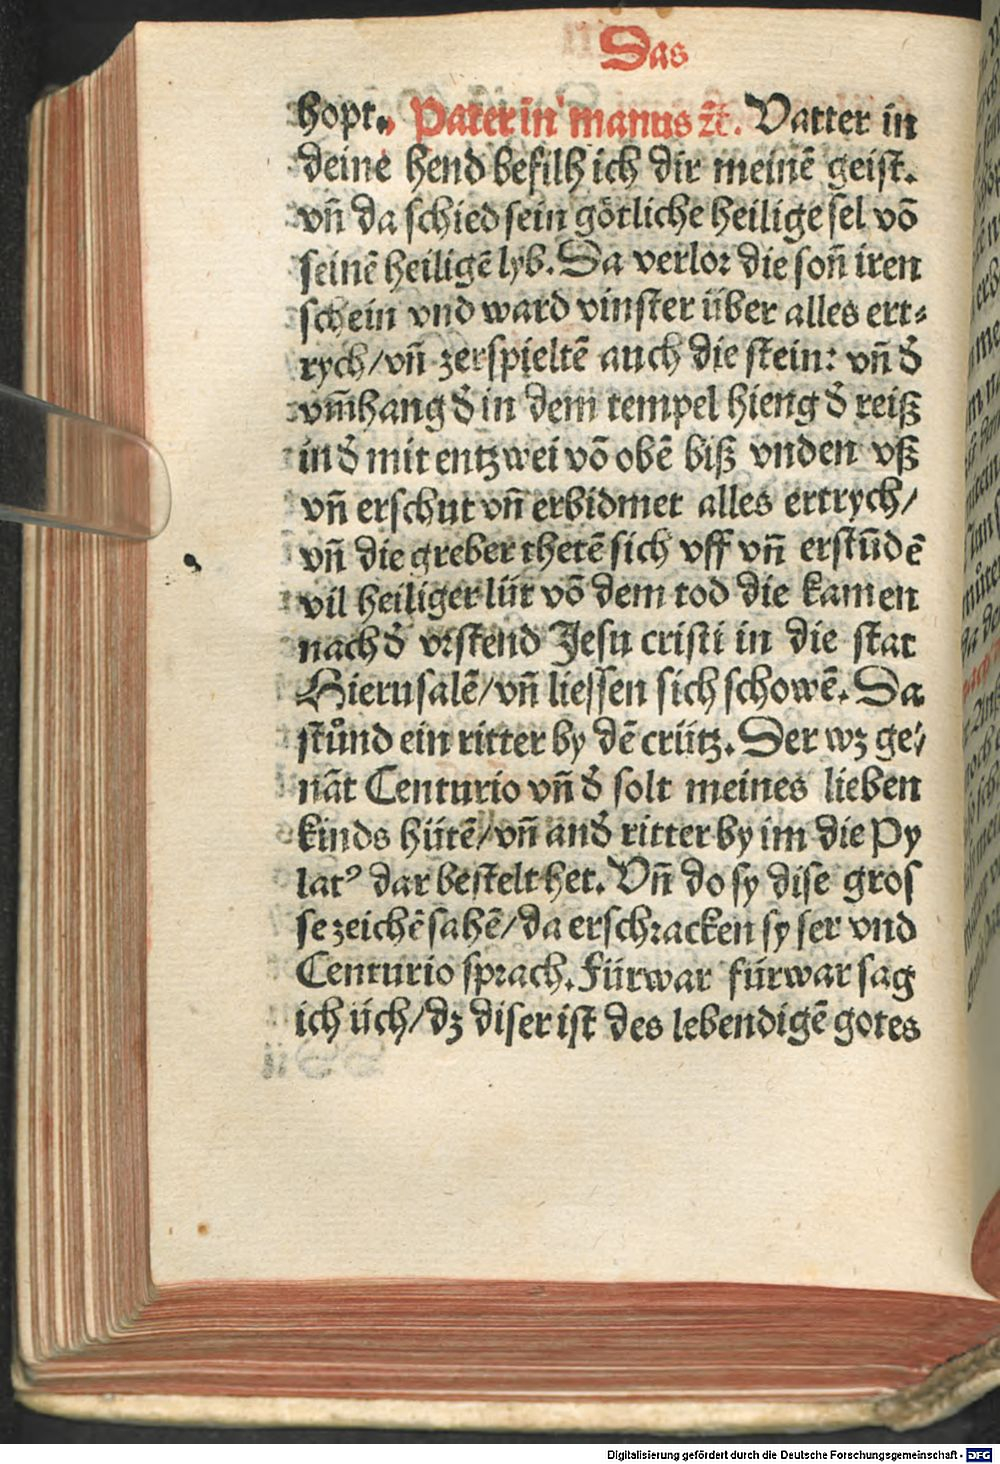 Das
hopt. Pater in manus ⁊c̄. Vatter in
deine hend befilh ich dir meinē geist.
vn̄ da schied sein götliche heilige sel vō
seinē heiligē lyb. Da verlor die son̄ iren
schein vnd ward vinster über alles ert⸗
rych/vn̄ zerspieltē auch die stein: vn̄ d̓
vm̄hang d̓ in dem tempel hieng d̓ reiß
in d̓ mit entzwei vō obē biß vnden vß
vn̄ erschut vn̄ erbidmet alles ertrych/
vn̄ die greber thetē sich vff vn̄ erstūdē
vil heiliger lüt vō dem tod die kamen
nach d̓ vrstend Jesu cristi in die stat
Hierusalē/vn̄ liessen sich schowē. Da
stůnd ein ritter by dē crütz. Der wz ge⸗
nāt Centurio vn̄ d̓ solt meines lieben
kinds hütē/vn̄ and̓ ritter by im die Py
latꝰ dar bestelt het. Vn̄ do sy dise gros
se zeichē sahē/da erschracken sy ser vnd
Centurio sprach. Fürwar fürwar sag
ich üch/dz diser ist des lebendigē gotes
Digitalisierung gefördert durch die Deutsche Forschungsgemeinschaft - DFG